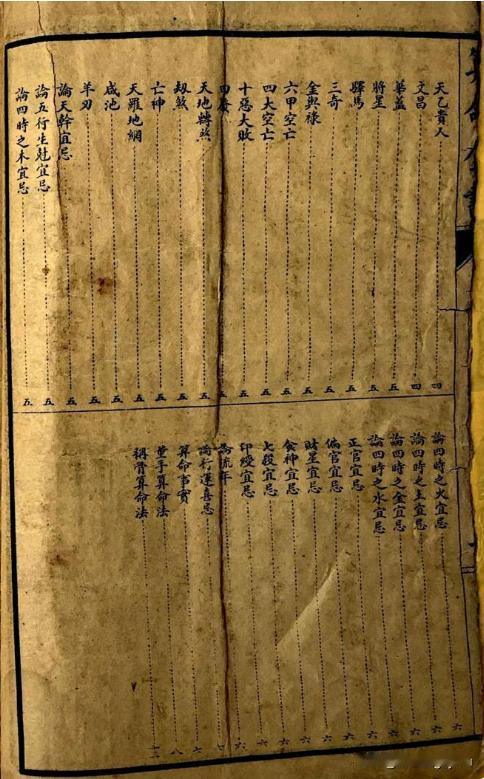 天乙貴人 四
文昌 四
華蓋 五
將星 五
驛馬 五
三奇 五
金輿祿 五
六甲空亡 五
四大空亡 五
十惡大敗 五
四廢 五
天地轉煞 五
劫煞 五
亡神 五
天羅地網 五
咸池 五
羊刃 五
論天幹宜忌 五
論五行生尅宜忌 五
論四時之木宜忌 五
論四時之火宜忌 六
論四時之土宜忌 六
論四時之金宜忌 六
論四時之水宜忌 六
正官宜忌 六
偏官宜忌 六
財星宜忌 六
食神宜忌 六
七殺宜忌 六
印綬宜忌 六
流年 六
論行運喜忌 六
算命事實 八
算命法
稱骨算命法